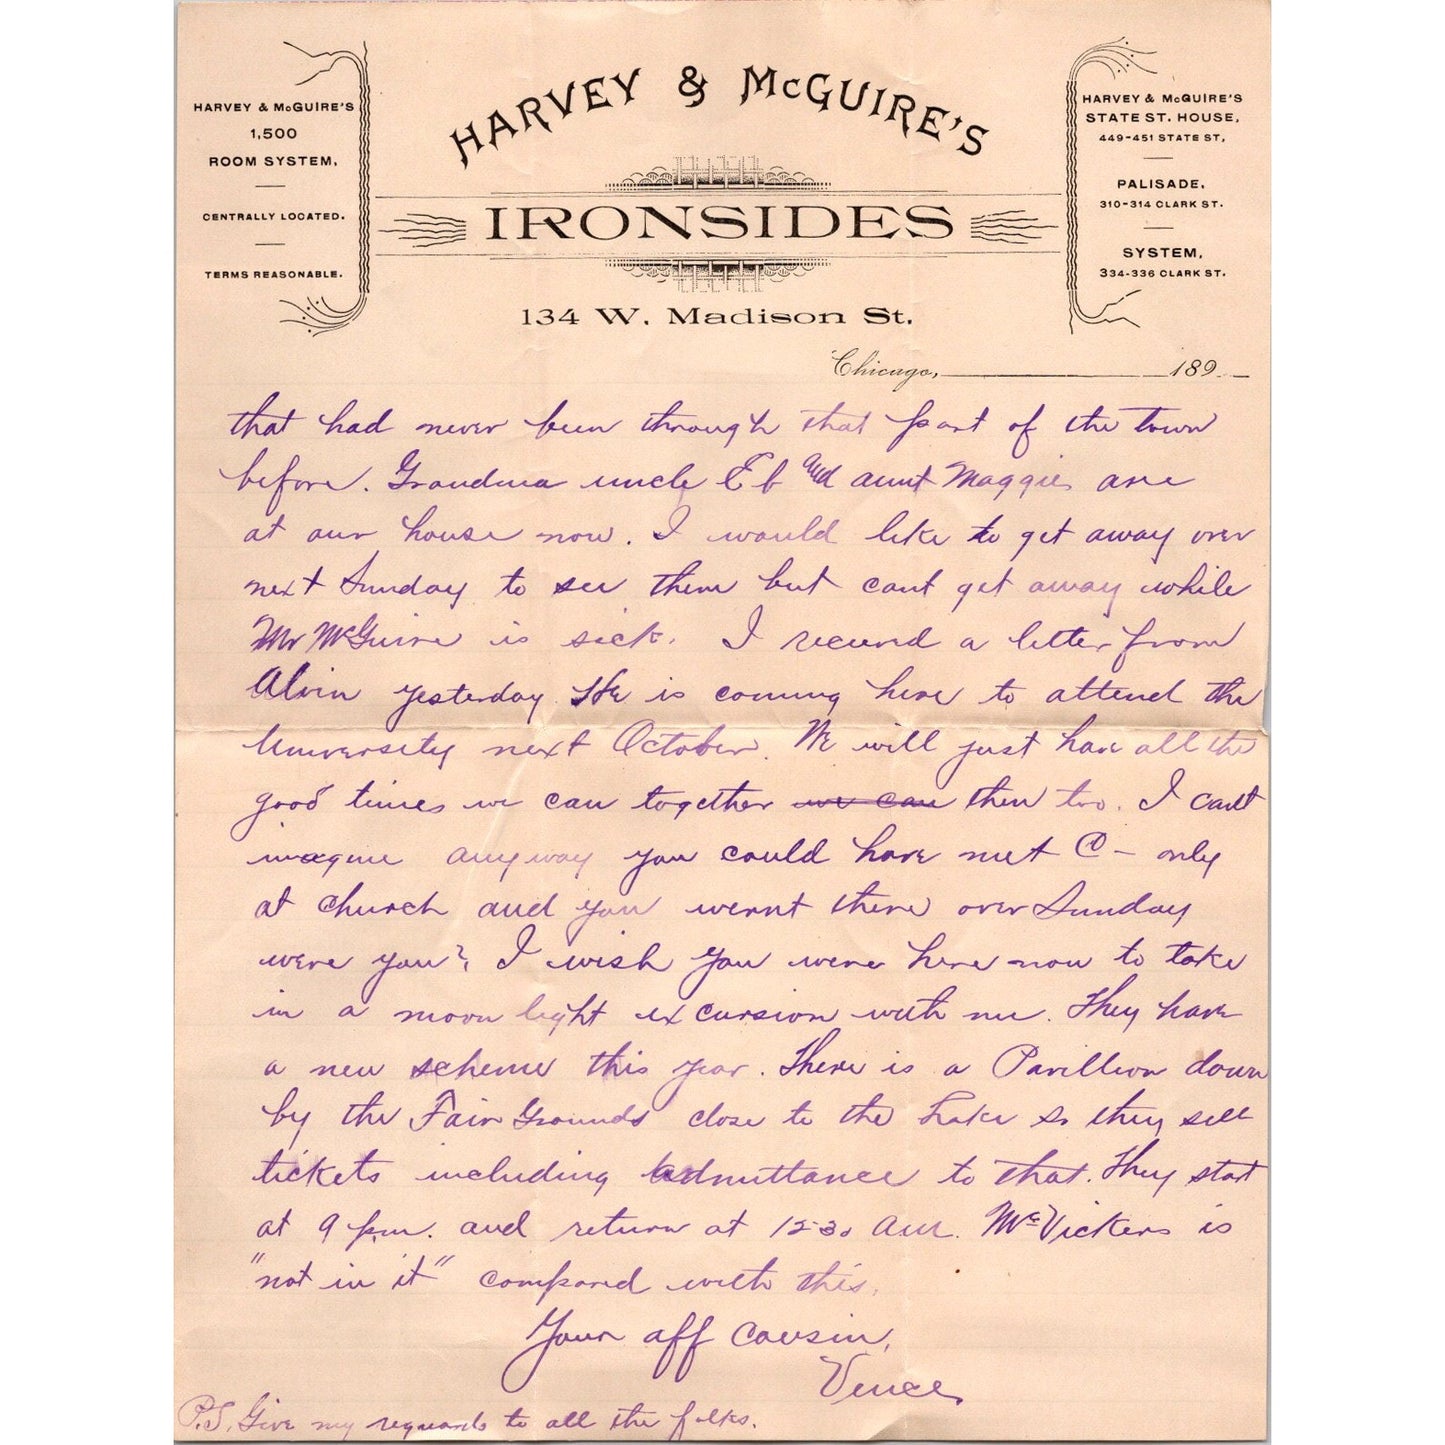 HARVEY & McGUIRE'S
1,500
ROOM SYSTEM,
CENTRALLY LOCATED.
TERMS REASONABLE.
HARVEY & McGUIRE'S
IRONSIDES
134 W. Madison St.
HARVEY & McGUIRE'S
STATE ST. HOUSE,
449-451 STATE ST,
PALISADE,
310-314 CLARK ST.
SYSTEM,
334-336 CLARK ST.
Chicago, 189
that had never been through that part of the town
before. Grandma uncle Eb and aunt Maggie are
at our house now. I would like to get away over
next Sunday to see them but cant get away while
Mr McGuire is sick. I received a letter from
Alvin yesterday He is coming here to attend the
University next October. We will just have all the
good times we can together we can then too. I cant
imagine anyway you could have met @ - only
at church and you wernt there over Sunday
were you? I wish you were here now to take
in a moon light excursion with me. They have
a new scheme this year. There is a Pavillion down
by the Fair Grounds close to the Lake so they sell
tickets including admittance to that. They start
at 9 p.m. and return at 12-30 a.m. McVickers is
"not in it" compared with this.
Your aff cousin,
Vence.
P.S. Give my reguards to all the folks.